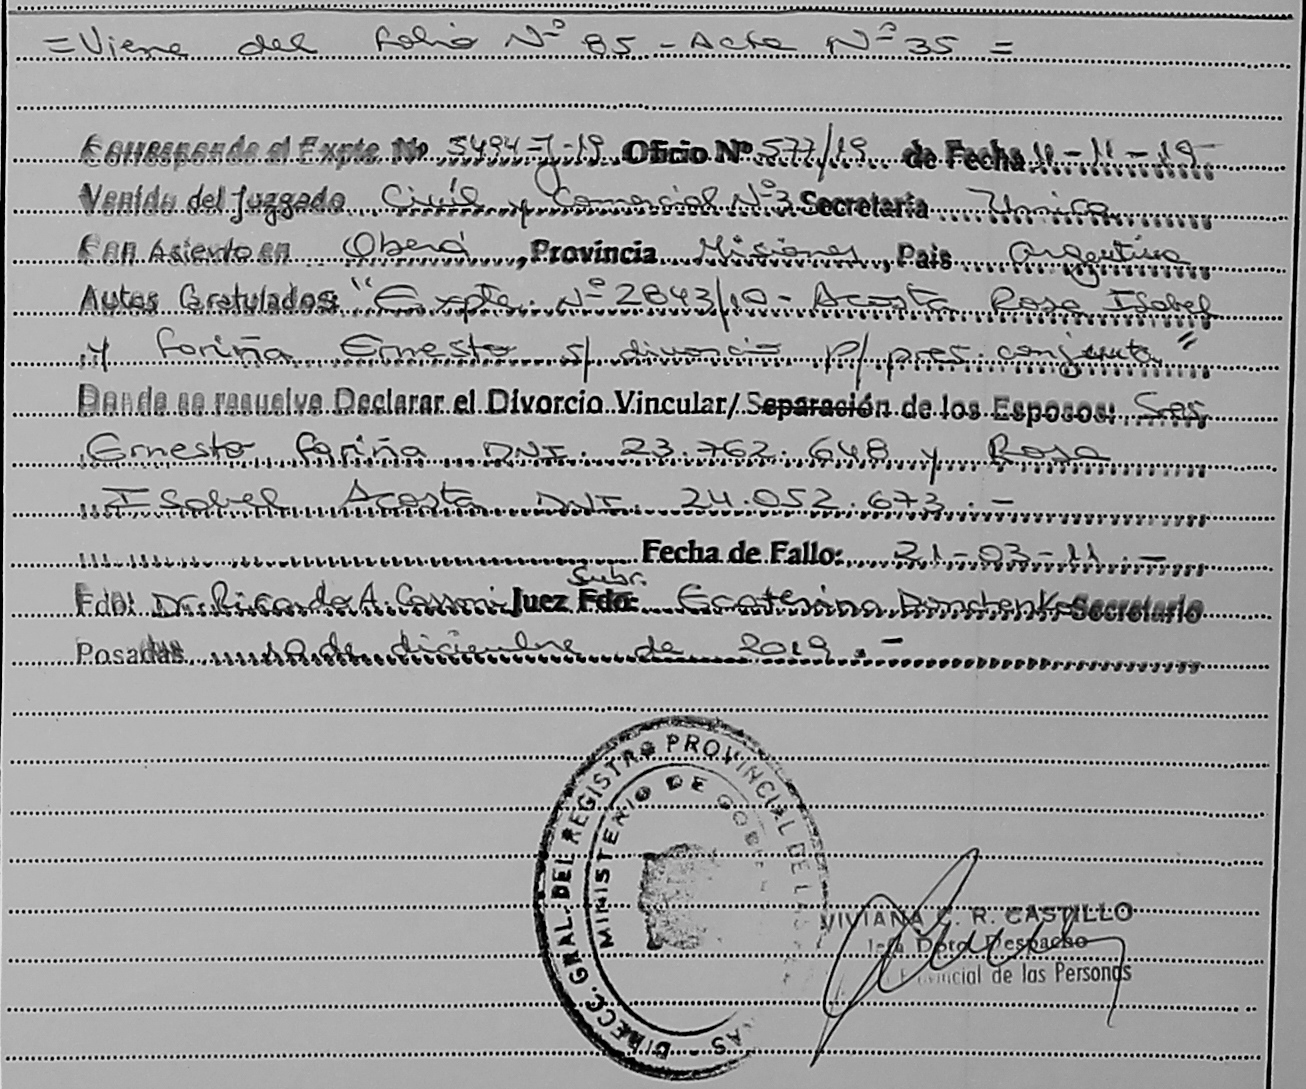 =Viene del folio Nº 85 - Acta Nº 35 =
Corresponde al Expte Nº 5494-J-19 Oficio Nº 577/19 de Fecha 11-11-19-
Venido del Juzgado Civil y Comercial Nº3 Secretaria Unica
Con Asiento en Oberá, Provincia Misiones, Pais Argentina
Autos Caratulados: "Expte. Nº 2843/10 - Acosta Rosa Isabel
y Fariña Ernesto s/ divorcio p/ pres. conjunta"
Donde se resuelve Declarar el Divorcio Vincular/Separación de los Esposos: Sres
Ernesto Fariña DNI. 23.762.648 y Rosa
Isabel Acosta DNI. 24.052.673.-
Fecha de Fallo: 21-03-11.-
Subr.
Fdo: Dr. Ricardo A. Juez Fdo: Ecaterina Secretario
Posadas 10 de diciembre de 2019.-
DIRECC. GRAL. DEL REGISTRO PROVINCIAL DE LAS
MINISTERIO DE
VIVIANA C. R. CASTILLO
Jefa Dpto. Despacho
Provincial de las Personas